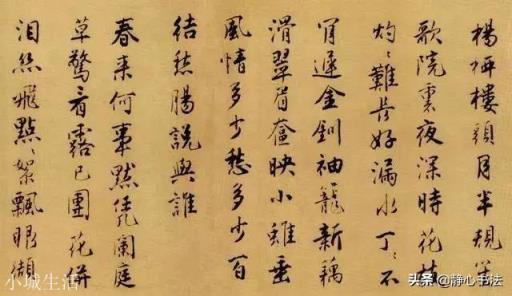 楊柳樓頭月半規笙
歌院裏夜深時花枝
灼〻難長好漏水丁〻不
肯遲金釧袖籠新藕
滑翠眉奩映小蛾垂
風情多少愁多少百
結愁腸說與誰
春來何事默凭闌庭
草驚看露已團花併
泪絲飛點〻絮飄眼纈
小城生活
头条 @静心书法